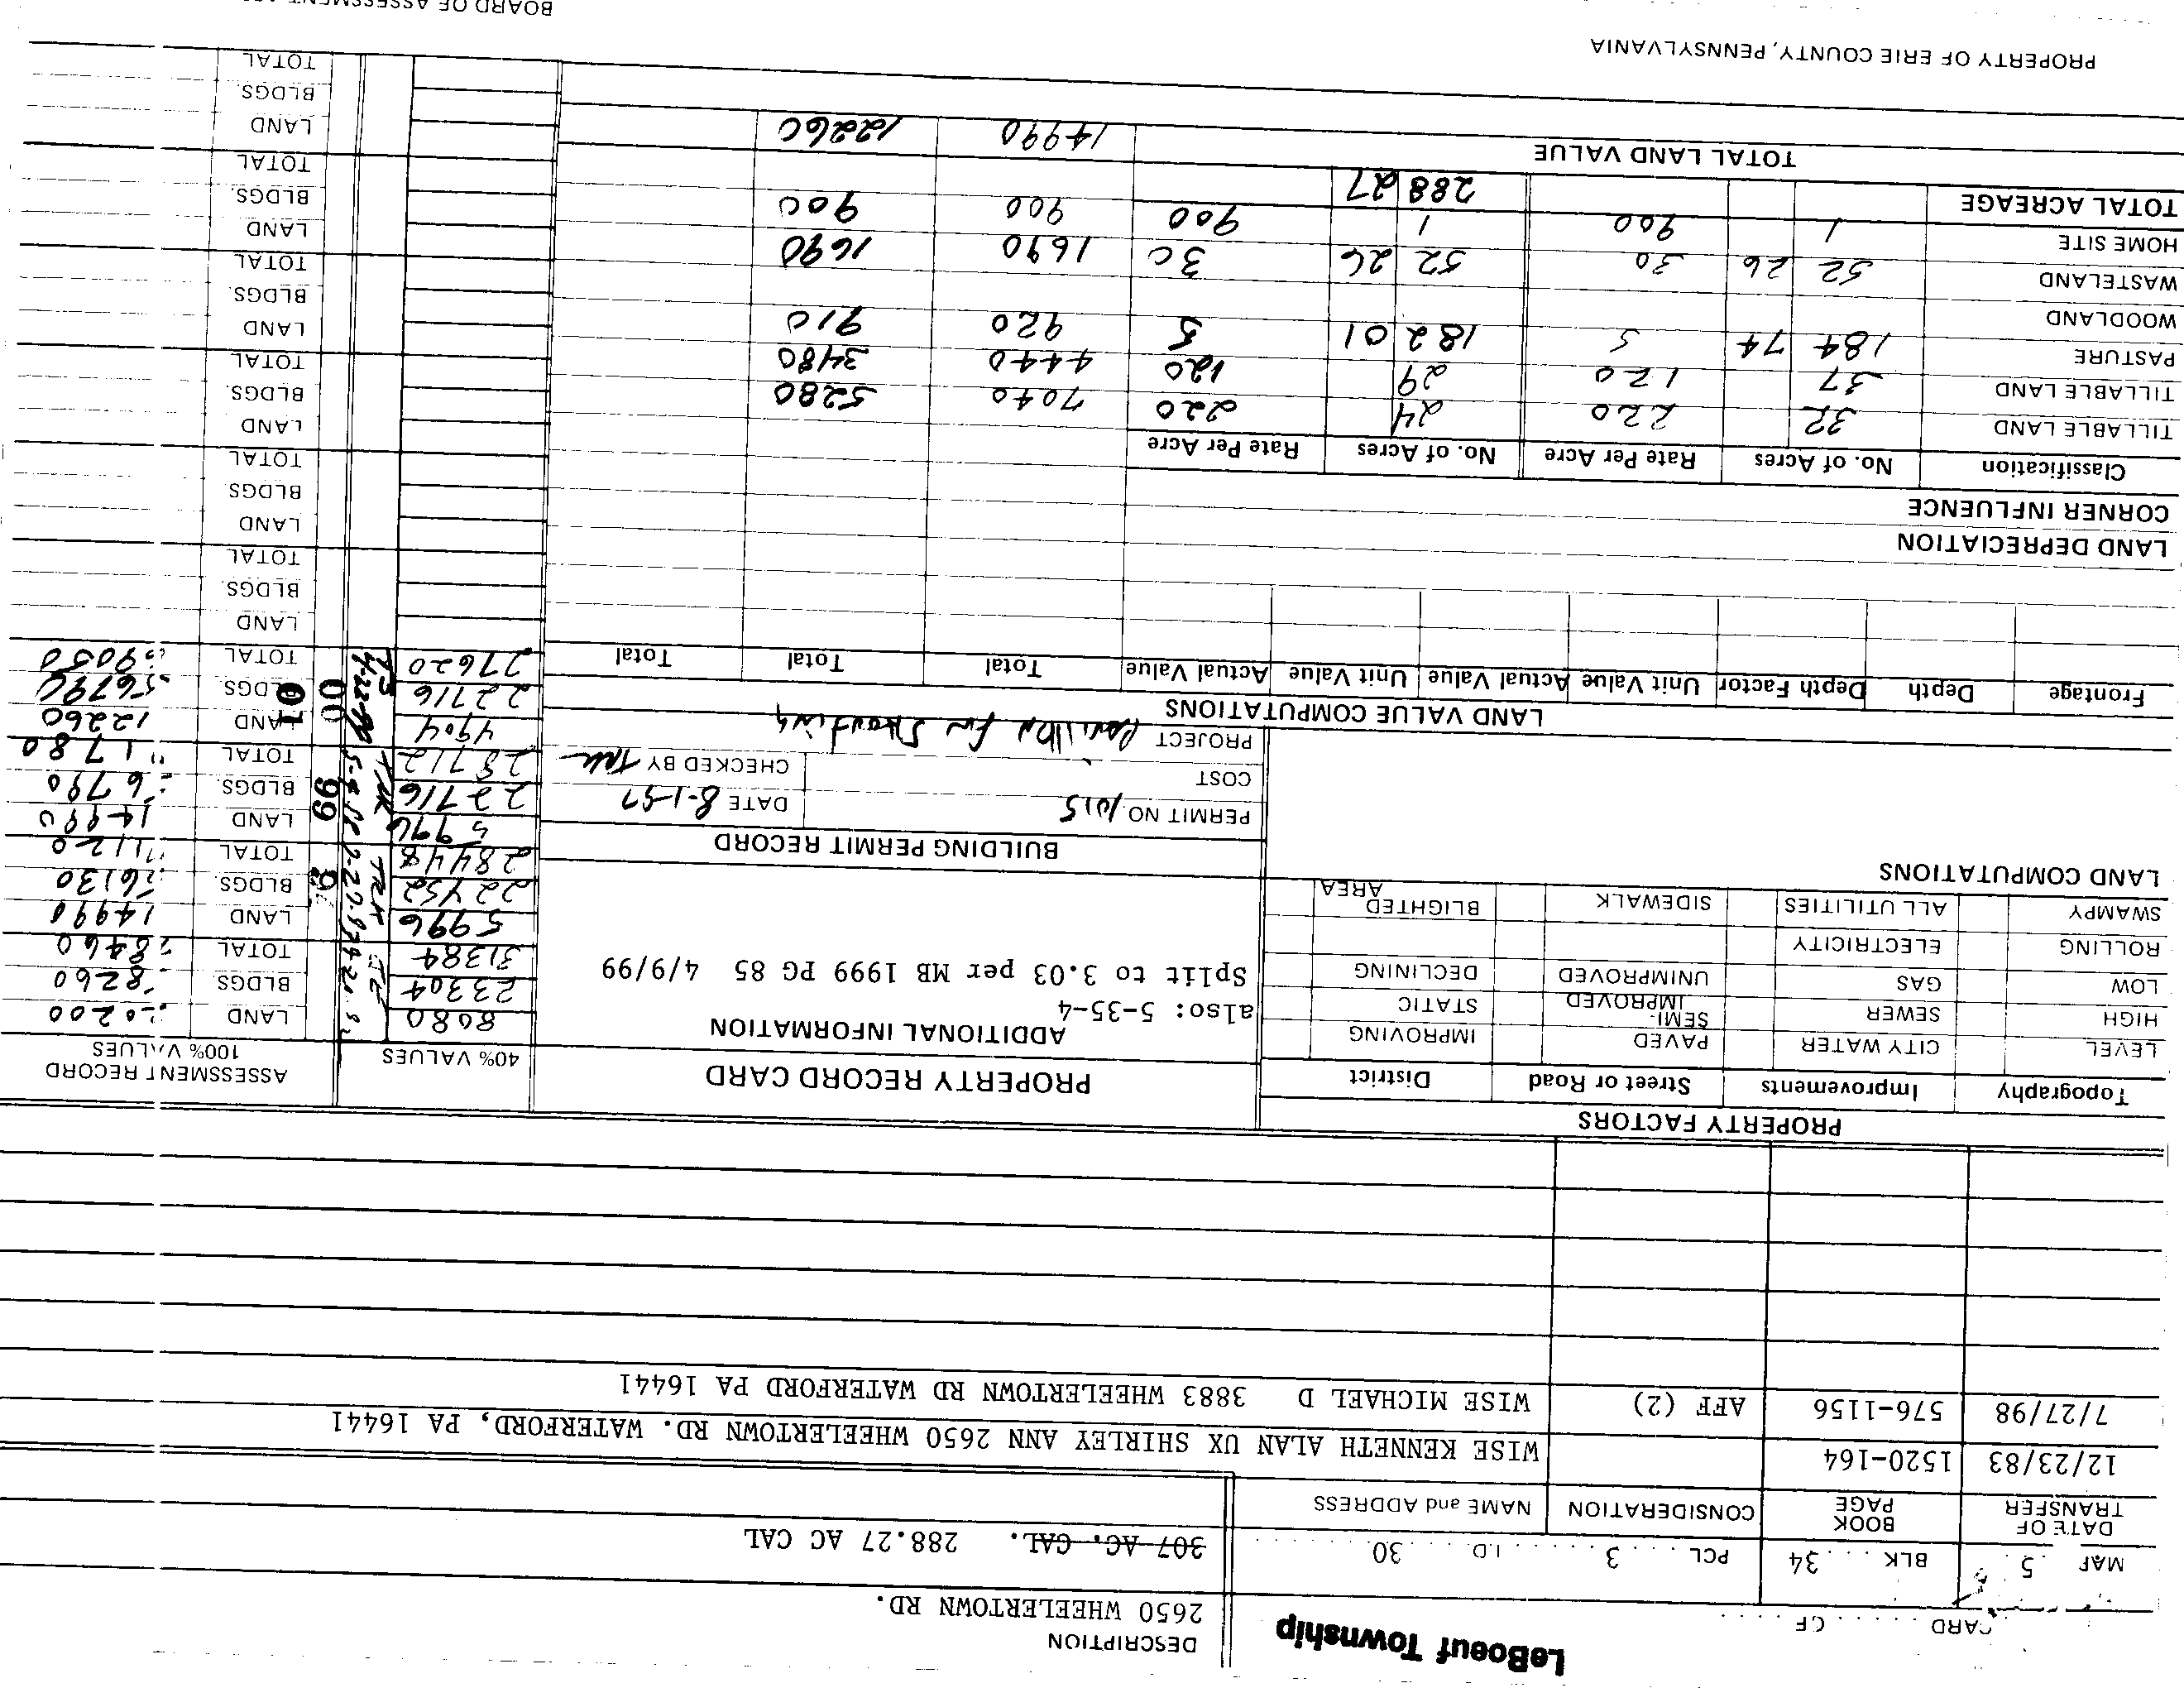 LeBoeuf Township
CARD . . . . . OF . . . . .
DESCRIPTION
2650 WHEELERTOWN RD.
MAP 5 BLK 34 PCL 3 I.D. 30
307 AC. CAL. 288.27 AC CAL
DATE OF TRANSFER BOOK PAGE CONSIDERATION NAME and ADDRESS
12/23/83 1520-164 WISE KENNETH ALAN UX SHIRLEY ANN 2650 WHEELERTOWN RD. WATERFORD, PA 16441
7/27/98 576-1156 AFF (2) WISE MICHAEL D 3883 WHEELERTOWN RD WATERFORD PA 16441
PROPERTY FACTORS
Topography Improvements Street or Road District
LEVEL CITY WATER PAVED IMPROVING
HIGH SEWER SEMI-IMPROVED STATIC
LOW GAS UNIMPROVED DECLINING
ROLLING ELECTRICITY
SWAMPY ALL UTILITIES SIDEWALK BLIGHTED AREA
LAND COMPUTATIONS
PROPERTY RECORD CARD
ADDITIONAL INFORMATION
also: 5-35-4
Split to 3.03 per MB 1999 PG 85 4/9/99
BUILDING PERMIT RECORD
PERMIT NO. 1015 DATE 8-1-97
COST CHECKED BY TRK
PROJECT Pavillion for Shooting
40% VALUES ASSESSMENT RECORD 100% VALUES
8080 LAND 20200
23304 BLDGS. 8260
31384 TOTAL 8460
5996 LAND 14990
22452 BLDGS. 56130
28448 TOTAL 71120
5996 99 LAND 14990
22716 BLDGS. 56790
28712 TOTAL 71780
4904 00 01 LAND 12260
22716 BLDGS. 56790
27620 TOTAL 69050
LAND
BLDGS.
TOTAL
LAND
BLDGS.
TOTAL
LAND
BLDGS.
TOTAL
LAND
BLDGS.
TOTAL
LAND
BLDGS.
TOTAL
LAND
BLDGS.
TOTAL
LAND VALUE COMPUTATIONS
Frontage Depth Depth Factor Unit Value Actual Value Unit Value Actual Value Total Total Total
LAND DEPRECIATION
CORNER INFLUENCE
Classification No. of Acres Rate Per Acre No. of Acres Rate Per Acre
TILLABLE LAND 32 220 24 220 7040 5280
TILLABLE LAND 37 120 29 120 4440 3480
PASTURE 184 74 5 182 01 5 920 910
WOODLAND
WASTELAND 52 26 30 52 26 30 1690 1690
HOME SITE 1 900 1 900 900 900
TOTAL ACREAGE 288 27
TOTAL LAND VALUE 14990 12260
PROPERTY OF ERIE COUNTY, PENNSYLVANIA
BOARD OF ASSESSMENT